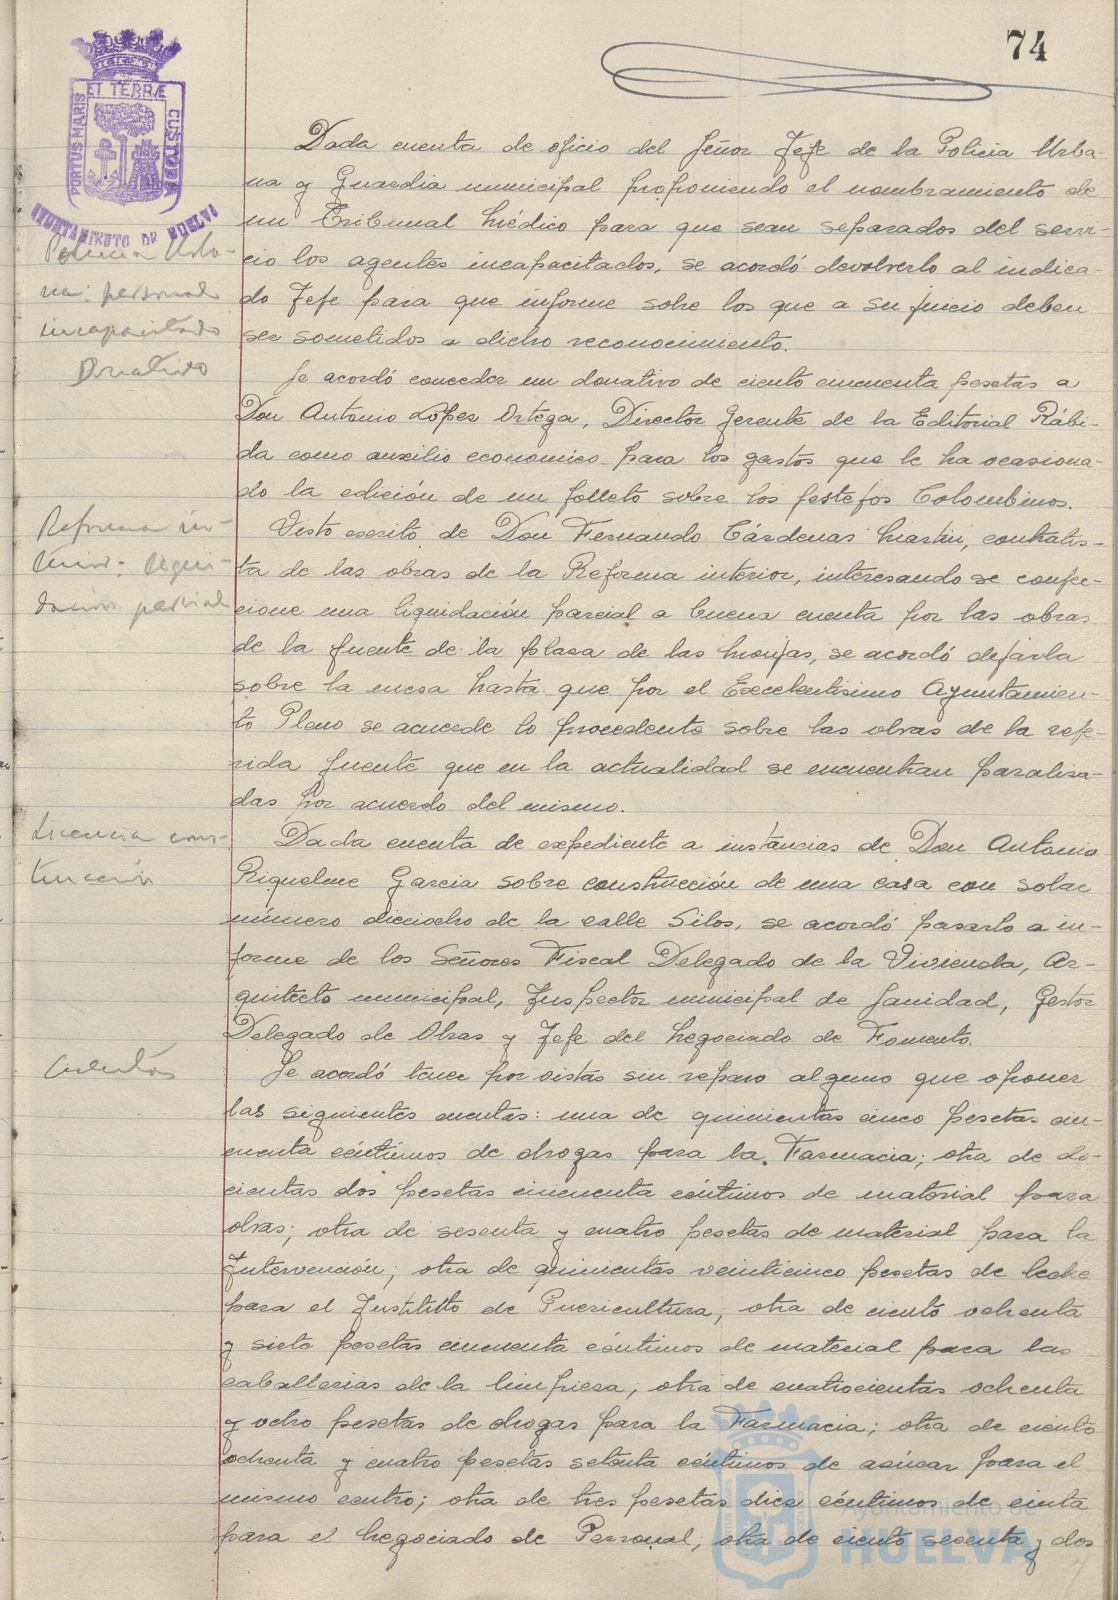 74
ET TERRÆ
PORTUS MARIS
CUSTODIA
AYUNTAMIENTO DE HUELVA
Dada cuenta de oficio del Señor Jefe de la Policia Urba-
na y Guardia municipal proponiendo el nombramiento de
un Tribunal Médico para que sean separados del servi-
Policia Urba-
cio los agentes incapacitados, se acordó devolverlo al indica-
na: personal
do Jefe para que informe sobre los que a su juicio deben
incapacitado
ser sometidos a dicho reconocimiento.
Donativo
Se acordó conceder un donativo de ciento cincuenta pesetas a
Don Antonio Lopes Ortega, Director Gerente de la Editorial Rábi-
da como auxilio economico para los gastos que le ha ocasiona-
do la edición de un folleto sobre los festejos Colombinos.
Reforma in-
Visto escrito de Don Fernando Cárdenas Martin, contratis-
terior: liqui-
ta de las obras de la Reforma interior, interesando se confec-
dación parcial
cione una liquidación parcial a buena cuenta por las obras
de la fuente de la plasa de las Monjas, se acordó dejarla
sobre la mesa hasta que por el Excelentisimo Ayuntamien-
to Pleno se acuerde lo procedente sobre las obras de la refe-
rida fuente que en la actualidad se encuentran paralisa-
das por acuerdo del mismo.
Licencia cons-
Dada cuenta de expediente a instancias de Don Antonio
trucción
Riquelme Garcia sobre construcción de una casa con solar
número dieciocho de la calle Silos, se acordó pasarlo a in-
forme de los Señores Fiscal Delegado de la Vivienda, Ar-
quitecto municipal, Inspector municipal de Sanidad, Gestor
Delegado de Obras y Jefe del Negociado de Fomento.
Cuentas
Se acordó tener por vistas sin reparo alguno que oponer
las siguientes cuentas: una de quinientas cinco pesetas cin-
cuenta céntimos de drogas para la Farmacia; otra de do-
cientas dos pesetas cincuenta céntimos de material para
obras; otra de sesenta y cuatro pesetas de material para la
Intervención; otra de quinientas veinticinco pesetas de leche
para el Instituto de Puericultura; otra de ciento ochenta
y siete pesetas cincuenta céntimos de material para las
caballerias de la limpiesa; otra de cuatrocientas ochenta
y ocho pesetas de drogas para la Farmacia; otra de ciento
ochenta y cuatro pesetas setenta céntimos de asúcar para el
mismo centro; otra de tres pesetas dies céntimos de cinta
para el Negociado de Personal; otra de ciento sesenta y dos
Ayuntamiento de
HUELVA